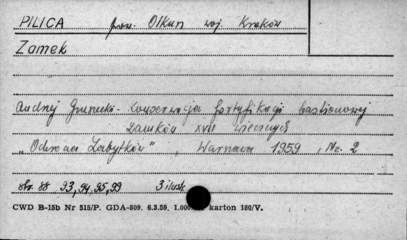 PILICA pow. Olkusz woj. Kraków
Zamek
Andrzej Gruszecki - Konserwacja fortyfikacji bastionowej
zamków XVII wiecznych
„Ochrona Zabytków" , Warszawa 1959 , Nr. 2
str. 88 93, 94, 95, 99 3 ilustr.
CWD B-15b Nr 515/P. GDA-809. 6.3.59. 1.000 karton 180/V.